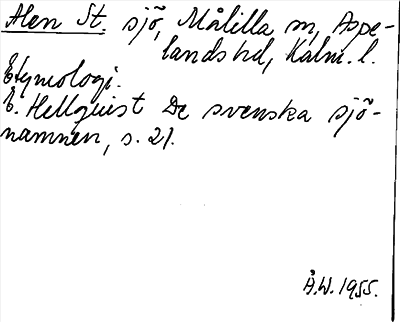 Alen St. sjö, Målilla sn, Aspe-
landshd, Kalm. l.
Etymologi.
E. Hellquist De svenska sjö-
namnen, s. 21.
Å.W. 1955.